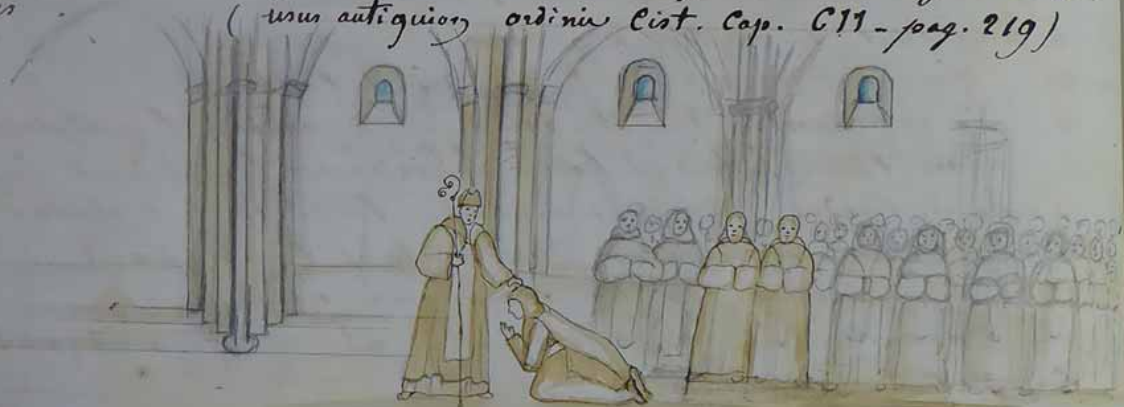 ( usus antiquior ordinis Cist. Cap. CII - pag. 219)